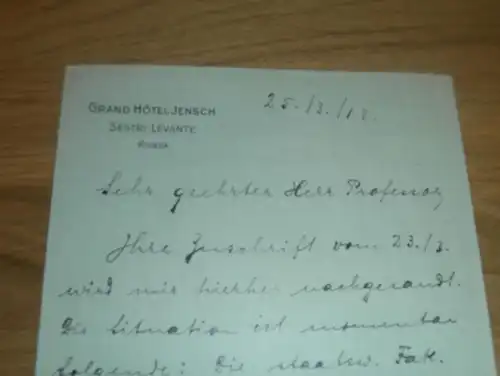 GRAND HÔTEL JENSCH
SESTRI LEVANTE
RIVIERA
25./3./13.
Sehr geehrter Herr Professor
Ihre Zuschrift vom 23./3.
wird mir hierher nachgesandt.
Die Situation ist momentan
folgende: Die staatsw. Fak.